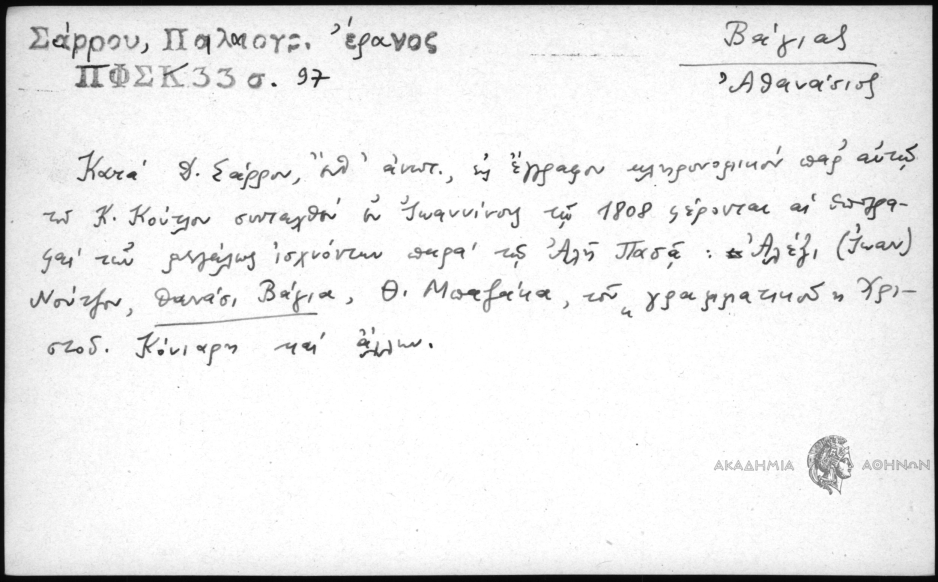 Σάρρου, Παλαιογρ. ἔρανος
ΠΦΣΚ 33 σ. 97
Βάγιας
Ἀθανάσιος
Κατά Δ. Σάρρον, ἔνθ' ἀνωτ., εἰς ἔγγραφον κληρονομικόν παρ' αὐτῷ
τοῦ Κ. Κούτλου συνταχθέν ἐν Ἰωαννίνοις τῷ 1808 φέρονται αἱ ὑπογρα-
φαί τῶν μεγάλως ἰσχυόντων παρά τῷ Ἀλῆ Πασᾷ : Ἀλέξι (Ἰωαν)
Νούτζου, Θανάσι Βάγια, Θ. Μπαζάκα, τοῦ "γραμματικοῦ" Χρι-
στοδ. Κόνιαρη καί ἄλλων.
ΑΚΑΔΗΜΙΑ ΑΘΗΝΩΝ